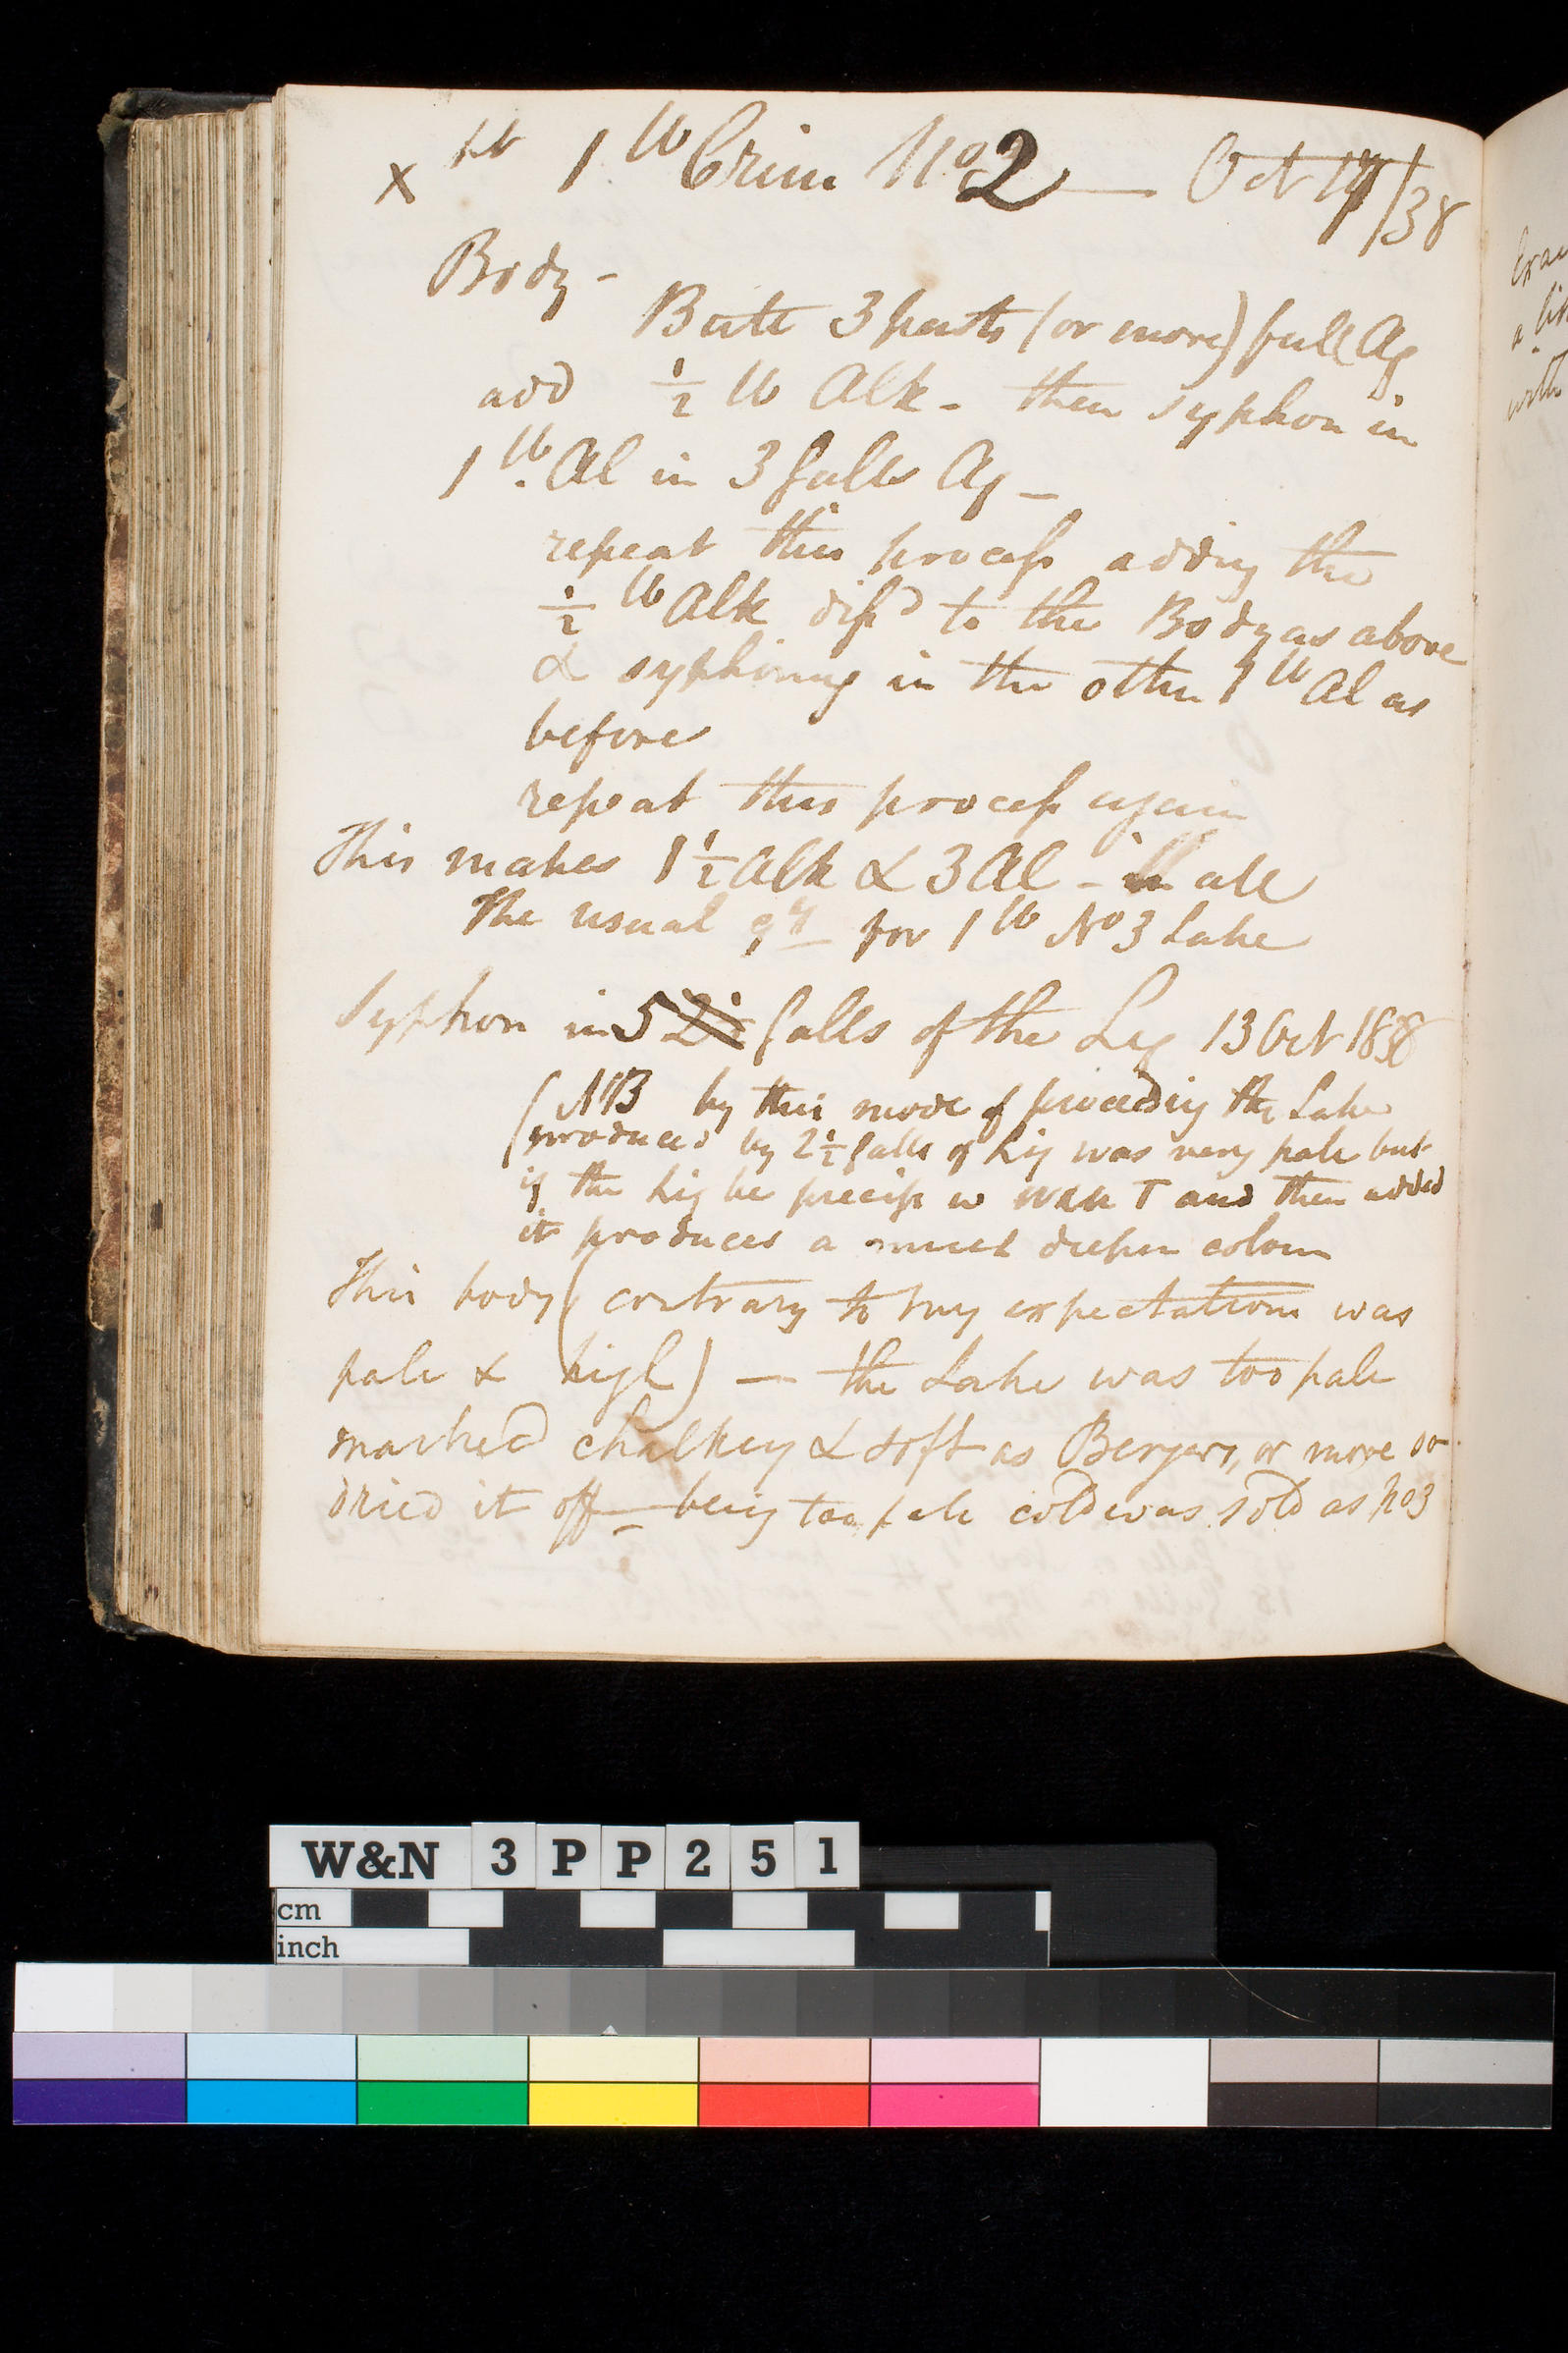 x 1 lb Crim No 2 — Oct 17/38
Body -
Bute 3 parts (or more) full Aq
add ½ lb Alk - then syphon in
1 lb. Al in 3 falls Aq —
repeat this process adding the
½ lb Alk disd to the Body as above
& syphoning in the other 1 lb Al as
before
repeat this process again
This makes 1½ Alk & 3 Al - in all
The usual qy for 1 lb No 3 Lake
Syphon in 5 galls of the Liq 13 Oct 1838
(NB by this mode of proceeding the Lake
produced by 2½ galls of Liq was very pale but
if the Liq be precip w wan T and then added
it produces a much deeper colour
This body (contrary to my expectations was
pale & high) — the Lake was too pale
marked chalkey & soft as Bergers, or more so
dried it off — being too pale cold was sold as No 3
Exac
a lit
with
W&N 3PP251
cm
inch